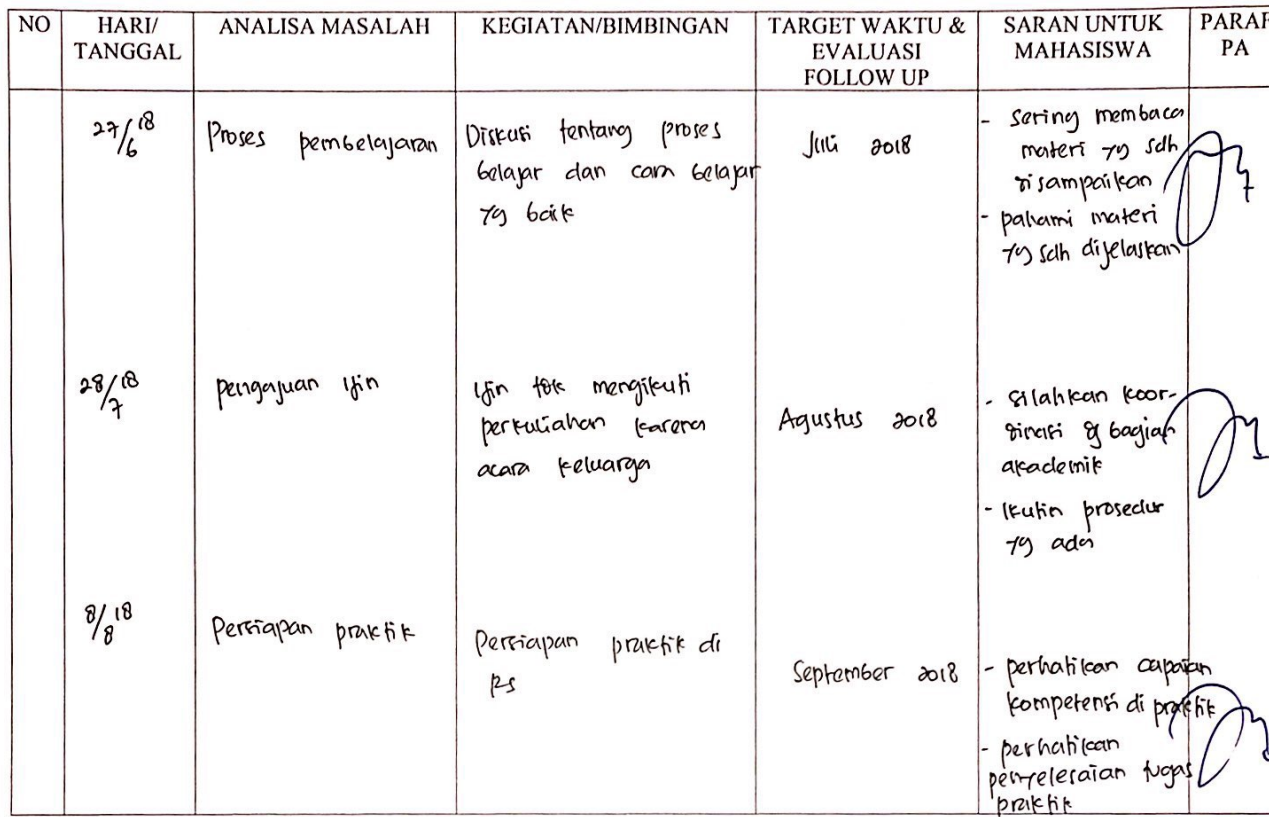 NO
HARI/
TANGGAL
ANALISA MASALAH
KEGIATAN/BIMBINGAN
TARGET WAKTU &
EVALUASI
FOLLOW UP
SARAN UNTUK
MAHASISWA
PARAF
PA
27/6 18
Proses pembelajaran
Diskusi tentang proses
belajar dan cara belajar
yg baik
Juli 2018
- Sering membaca
materi yg sdh
disampaikan
- pahami materi
yg sdh dijelaskan
28/7 18
pengajuan ijin
Ijin tdk mengikuti
perkuliahan karena
acara keluarga
Agustus 2018
- Silahkan koor-
dinasi dg bagian
akademik
- Ikutin prosedur
yg ada
8/8 18
Persiapan praktik
Persiapan praktik di
RS
September 2018
- perhatikan capaian
kompetensi di praktik
- perhatikan
penyelesaian tugas
praktik